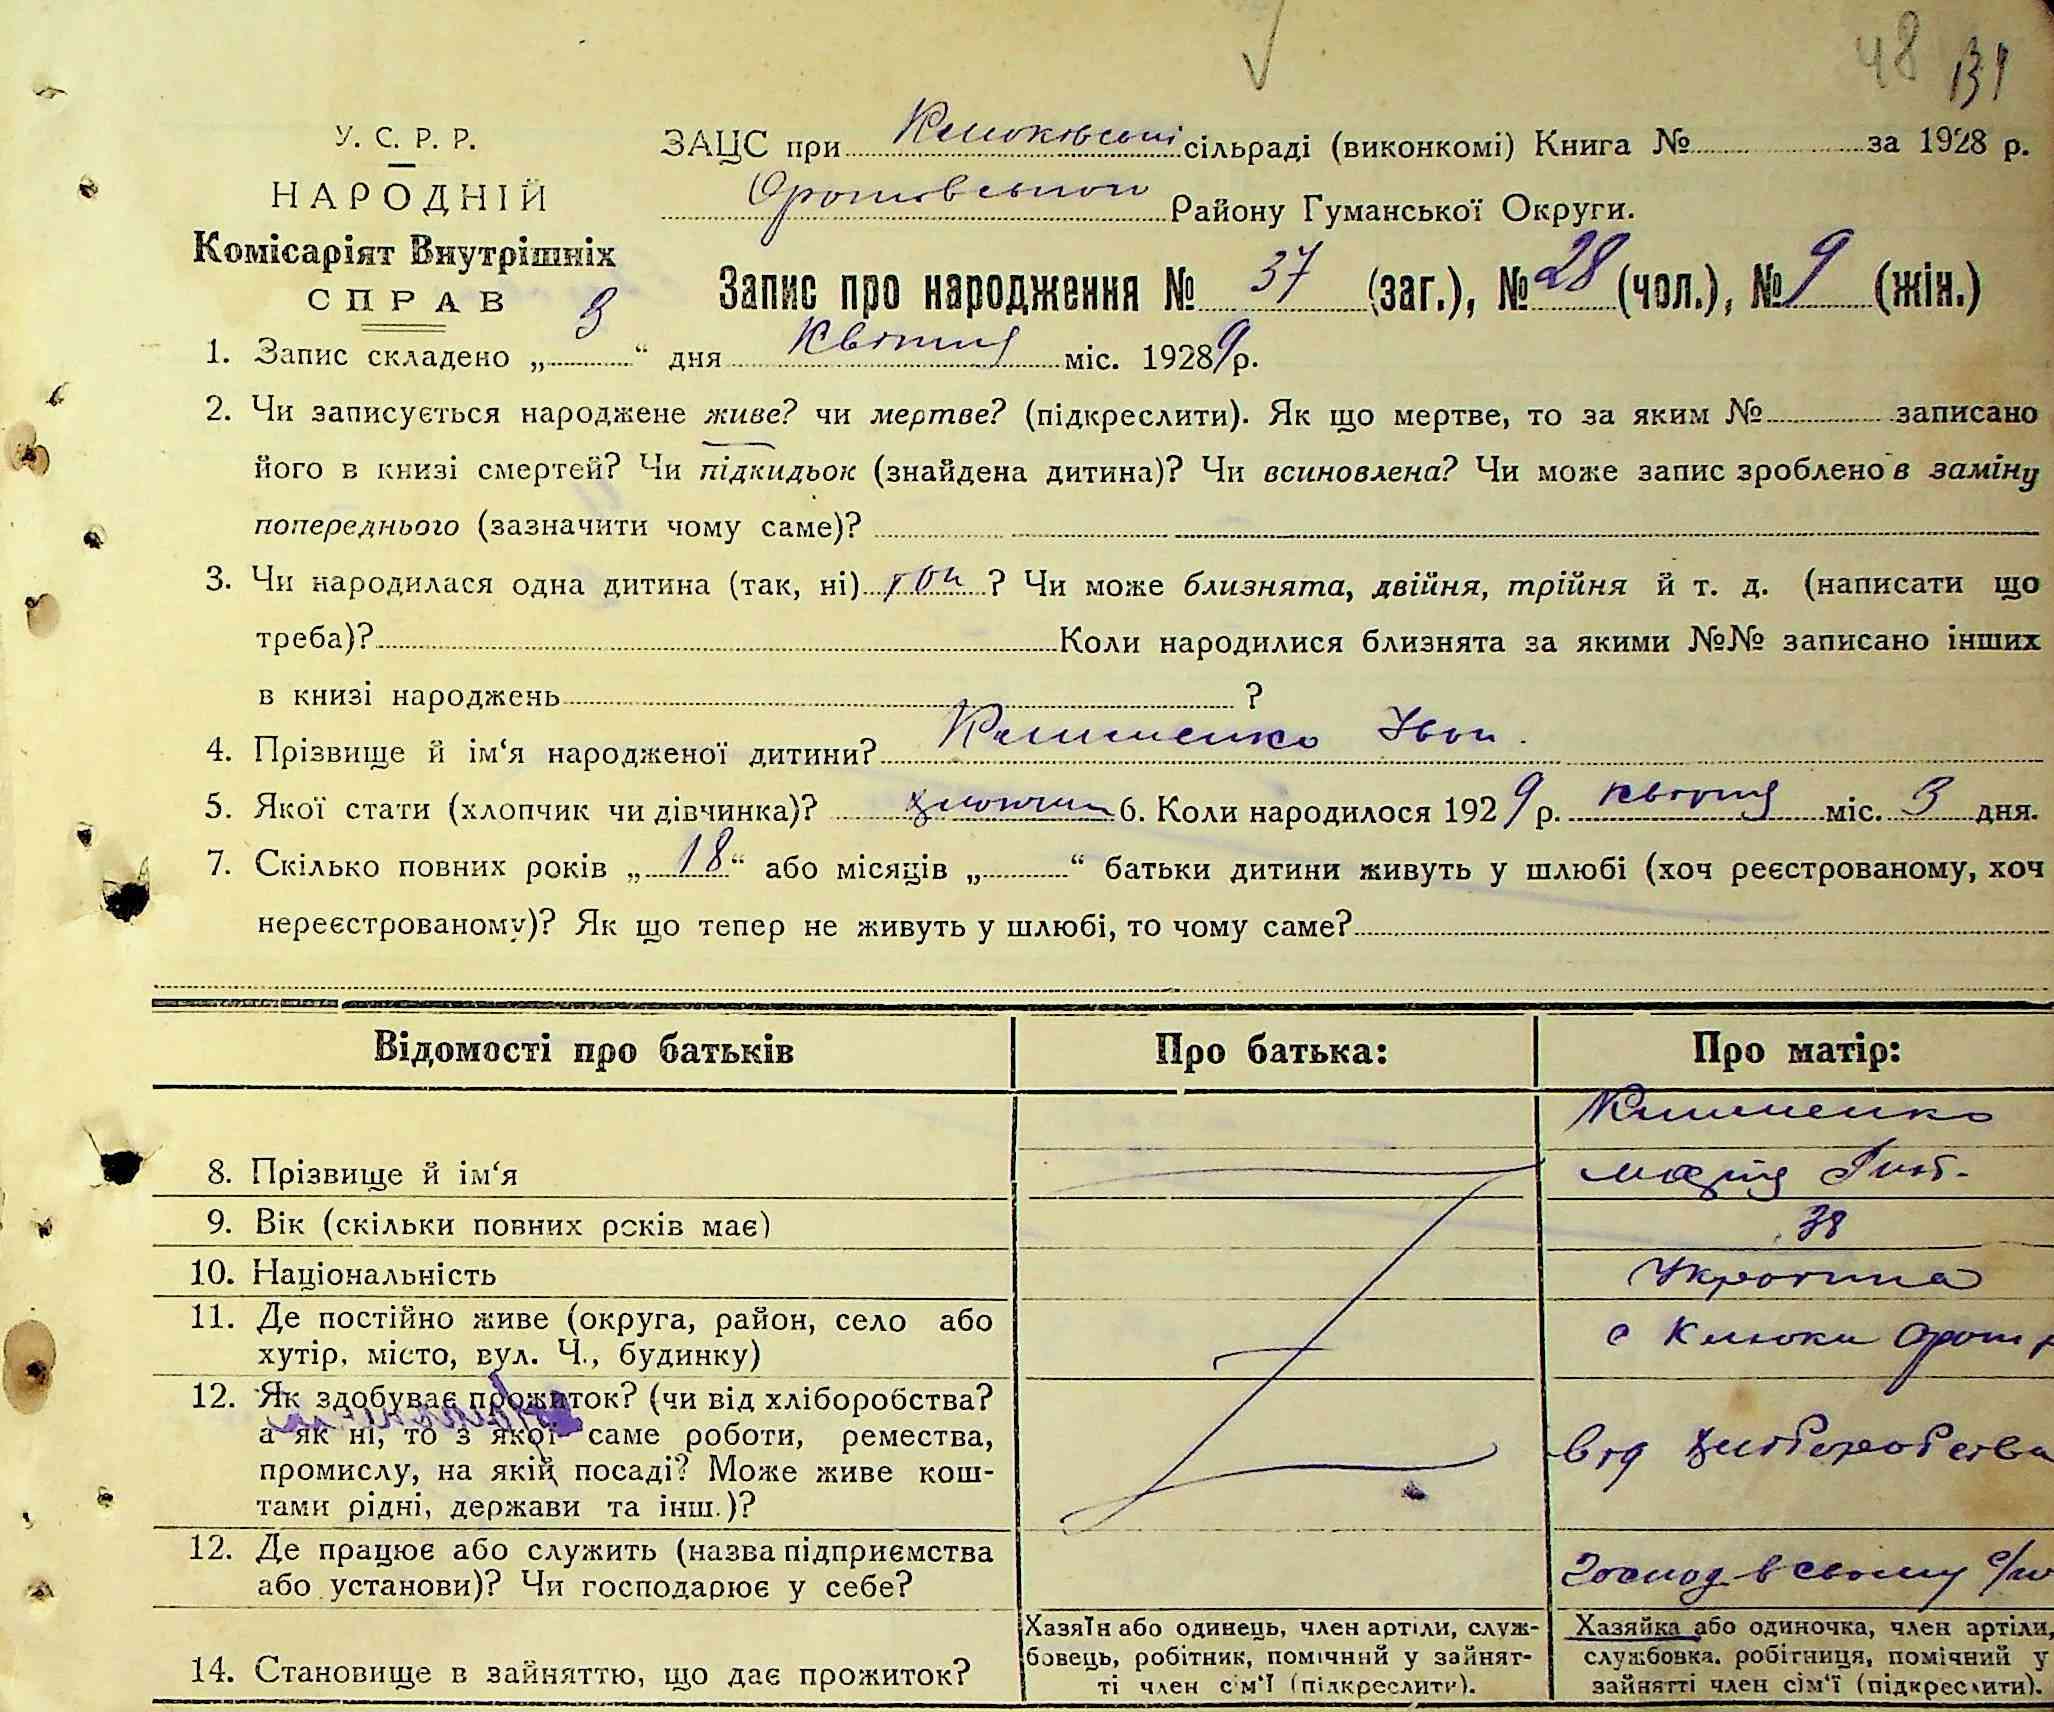 48 131
У. С. Р. Р.
НАРОДНІЙ
Комісаріят Внутрішніх
СПРАВ
ЗАЦС при Клюківській сільраді (виконкомі) Книга № за 1928 р.
Оратівського Району Гуманської Округи.
Запис про народження № 37 (заг.), № 28 (чол.), № 9 (жін.)
1. Запис складено „ 3 “ дня Квітня міс. 19289 р.
2. Чи записується народжене живе? чи мертве? (підкреслити). Як що мертве, то за яким № записано
його в книзі смертей? Чи підкидьок (знайдена дитина)? Чи всиновлена? Чи може запис зроблено в заміну
попереднього (зазначити чому саме)?
3. Чи народилася одна дитина (так, ні) так ? Чи може близнята, двійня, трійня й т. д. (написати що
треба)? Коли народилися близнята за якими №№ записано інших
в книзі народжень ?
4. Прізвище й ім‘я народженої дитини? Клименко Іван.
5. Якої стати (хлопчик чи дівчинка)? хлопчик 6. Коли народилося 1929 р. квітня міс. 3 дня.
7. Скілько повних років „ 18 “ або місяців „ “ батьки дитини живуть у шлюбі (хоч реєстрованому, хоч
нереєстрованому)? Як що тепер не живуть у шлюбі, то чому саме?
Відомості про батьків Про батька: Про матір:
Клименко
8. Прізвище й ім‘я Марія
9. Вік (скільки повних років має) 38
10. Національність Українка
11. Де постійно живе (округа, район, село або
хутір, місто, вул. Ч., будинку) с Клюки Орат р
12. Як здобуває прожиток? (чи від хліборобства?
а як ні, то з якої саме роботи, ремества,
промислу, на якій посаді? Може живе кош-
тами рідні, держави та інш.)? від хліборобства
12. Де працює або служить (назва підприємства
або установи)? Чи господарює у себе? господ в своєму с/г
14. Становище в зайняттю, що дає прожиток?
Хазяїн або одинець, член артіли, служ-
бовець, робітник, помічний у зайнят-
ті член сім‘ї (підкреслити).
Хазяйка або одиночка, член артіли,
службовка, робітниця, помічний у
зайнятті член сім‘ї (підкреслити).